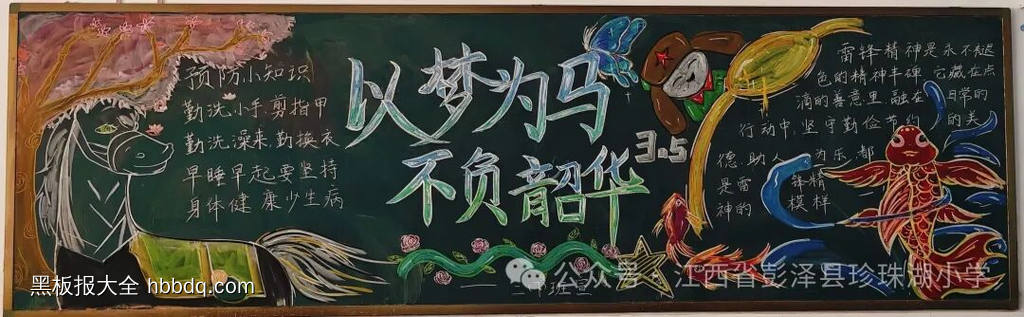 预防小知识
勤洗小手,剪指甲
勤洗澡来,勤换衣
早睡早起要坚持
身体健康少生病
以梦为马
不负韶华
3.5
雷锋精神是永不褪
色的精神丰碑 它藏在点
滴的善意里 融在日常的
行动中,坚守勤俭节约的美
德 助人为乐,都
是雷锋精
神的模样
黑板报大全 hbbdq.com
公众号·江西省彭泽县珍珠湖小学